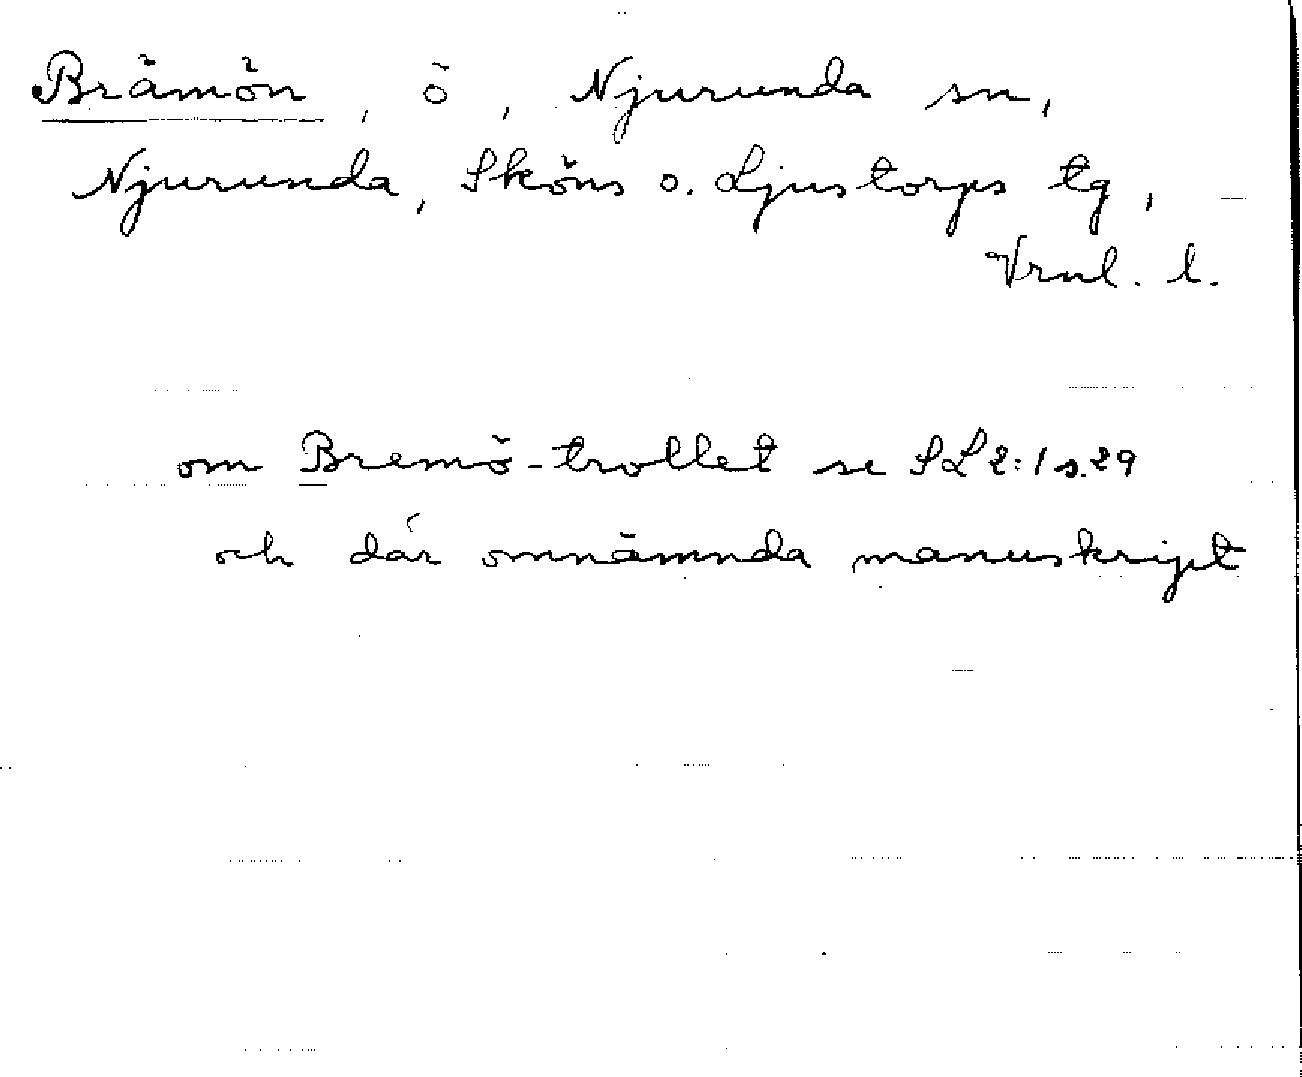 Brämön, ö, Njurunda sn,
Njurunda, Sköns o. Ljustorps tg,
Vrnl. l.
om Bremö-trollet se SL 2:1 s.29
och där omnämnda manuskript